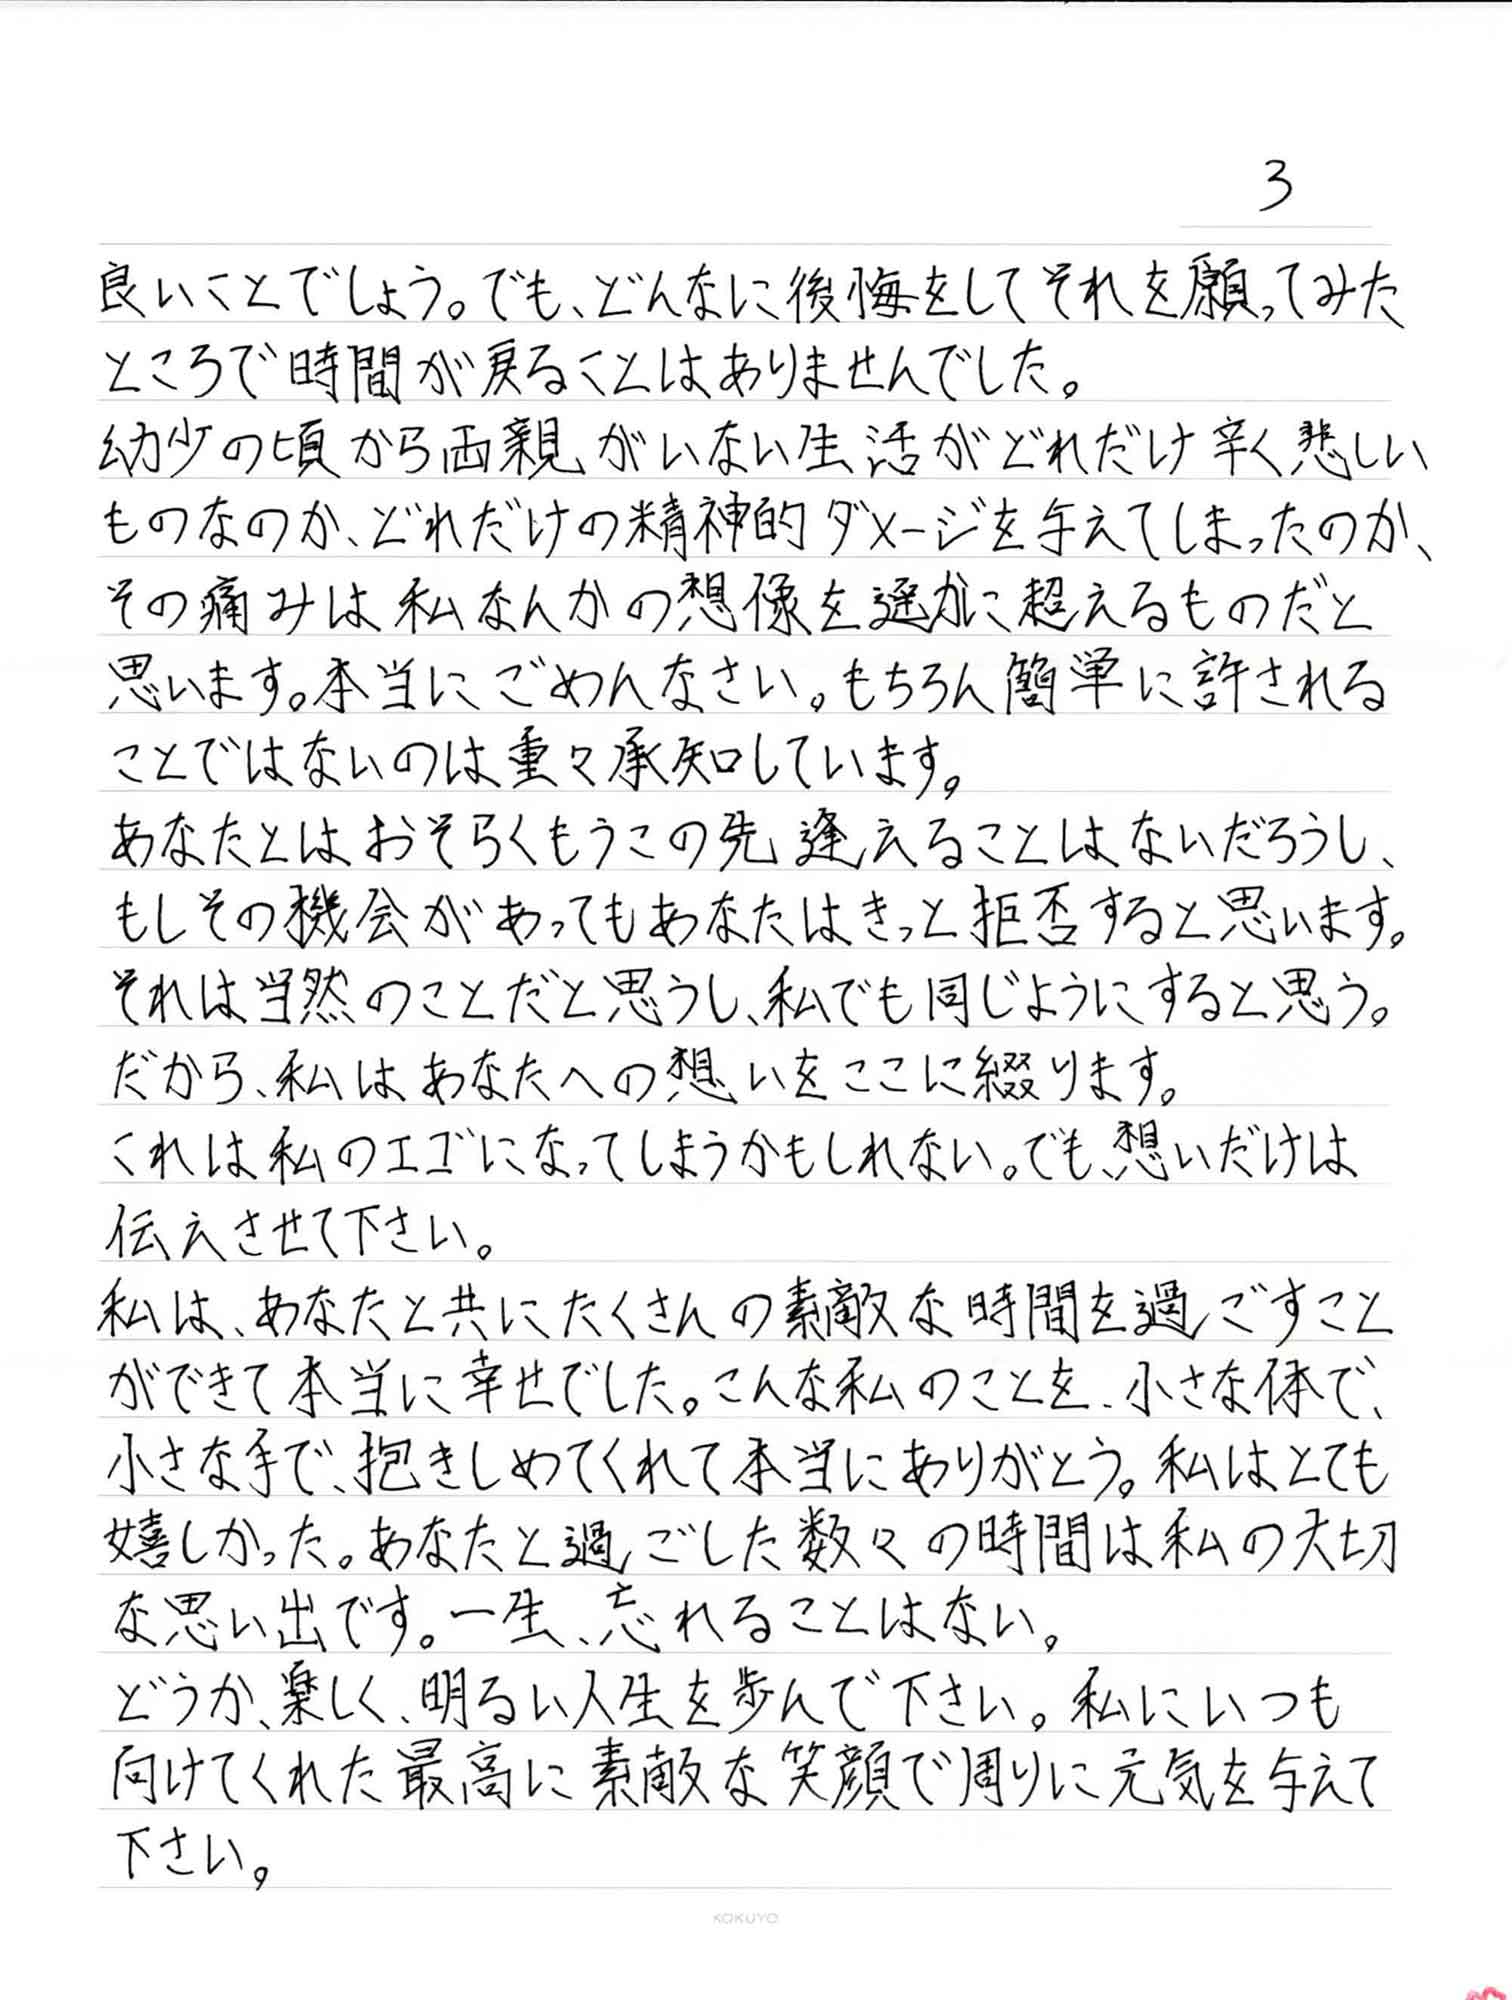 3
良いことでしょう。でも、どんなに後悔をしてそれを願ってみた
ところで時間が戻ることはありませんでした。
幼少の頃から両親がいない生活がどれだけ辛く悲しい
ものなのか、どれだけの精神的ダメージを与えてしまったのか、
その痛みは私なんかの想像を遥かに超えるものだと
思います。本当にごめんなさい。もちろん簡単に許される
ことではないのは重々承知しています。
あなたとはおそらくもうこの先逢えることはないだろうし、
もしその機会があってもあなたはきっと拒否すると思います。
それは当然のことだと思うし、私でも同じようにすると思う。
だから、私はあなたへの想いをここに綴ります。
これは私のエゴになってしまうかもしれない。でも、想いだけは
伝えさせて下さい。
私は、あなたと共にたくさんの素敵な時間を過ごすこと
ができて本当に幸せでした。こんな私のことを、小さな体で、
小さな手で、抱きしめてくれて本当にありがとう。私はとても
嬉しかった。あなたと過ごした数々の時間は私の大切
な思い出です。一生、忘れることはない。
どうか、楽しく、明るい人生を歩んで下さい。私にいつも
向けてくれた最高に素敵な笑顔で周りに元気を与えて
下さい。
KOKUYO